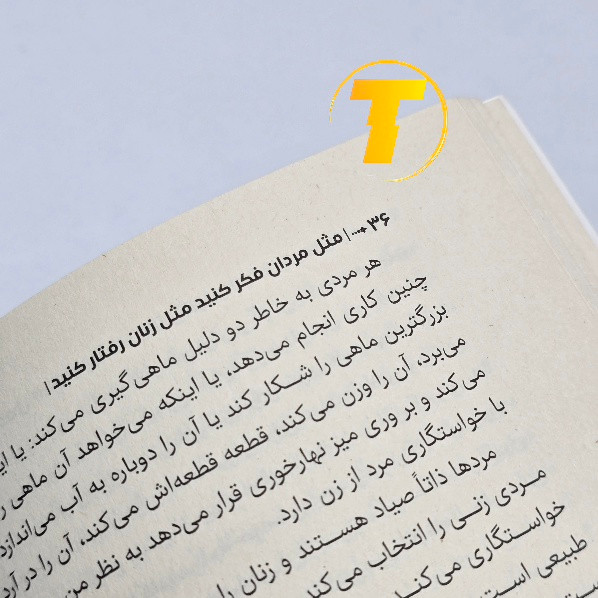 T
۳۶ | مثل مردان فکر کنید مثل زنان رفتار کنید |
هر مردی به خاطر دو دلیل ماهی‌گیری می‌کند: یا
چنین کاری انجام می‌دهد، یا اینکه می‌خواهد آن ماهی
بزرگترین ماهی را شکار کند یا آن را دوباره به آب می‌اندازد
می‌برد، آن را وزن می‌کند، قطعه قطعه‌اش می‌کند، آن را در آرد
می‌کند و بر وری میز نهارخوری قرار می‌دهد به نظر من
با خواستگاری مرد از زن دارد.
مردها ذاتاً صیاد هستند و زنان را
مردی زنی را انتخاب می‌کند
خواستگاری می‌کند
طبیعی است